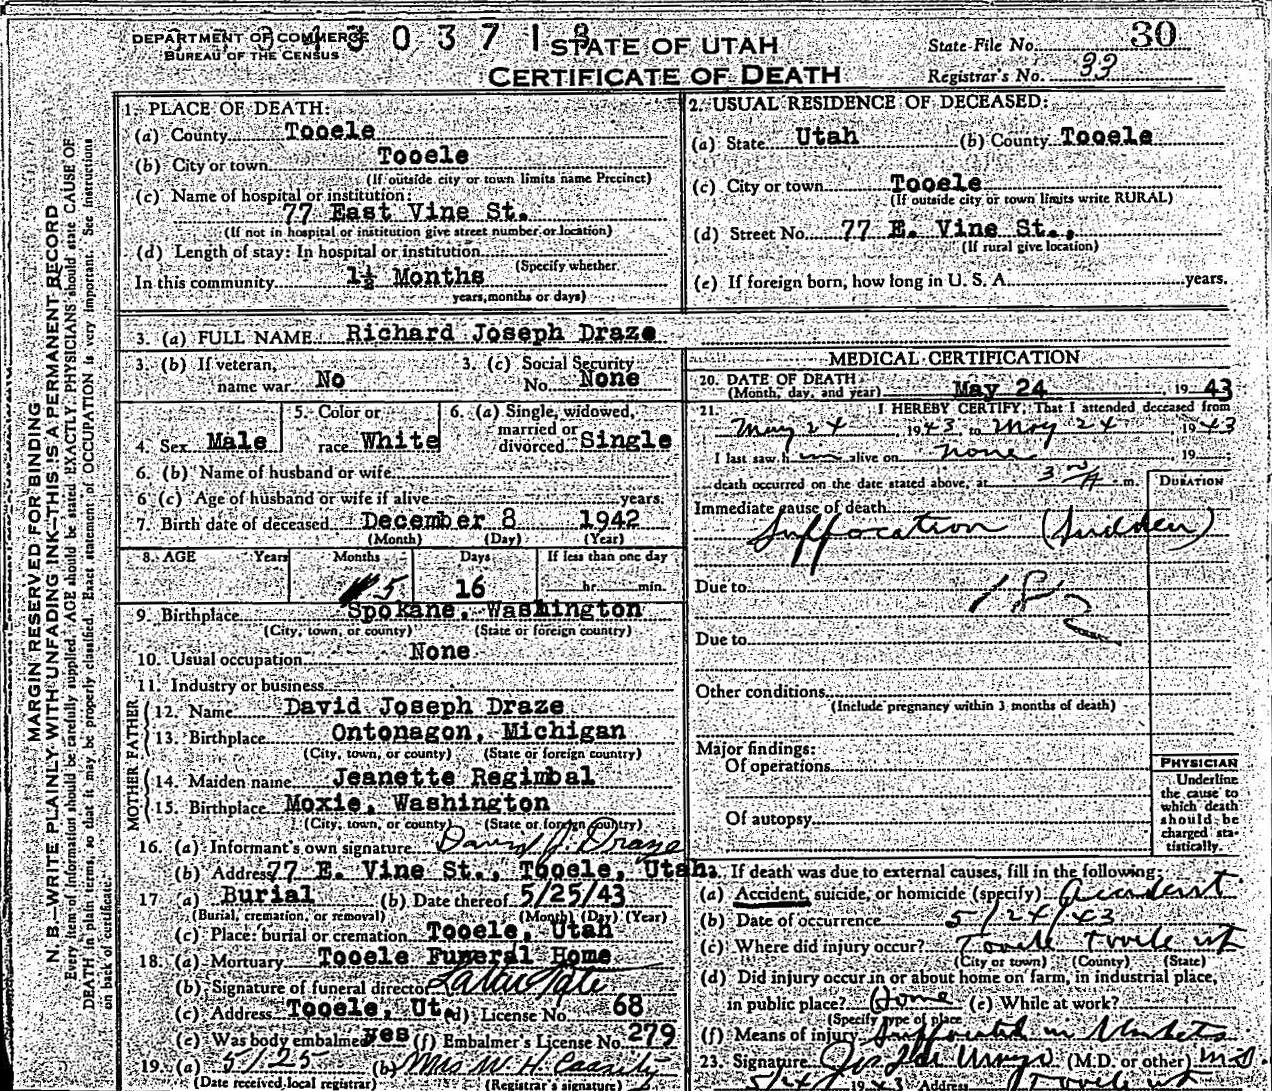 DEPARTMENT OF COMMERCE
BUREAU OF THE CENSUS
STATE OF UTAH
CERTIFICATE OF DEATH
State File No. 30
Registrar's No. 33
MARGIN RESERVED FOR BINDING
N. B.—WRITE PLAINLY WITH UNFADING INK—THIS IS A PERMANENT RECORD
Every item of information should be carefully supplied. AGE should be stated EXACTLY. PHYSICIANS should state CAUSE OF
DEATH in plain terms, so that it may be properly classified. Exact statement of OCCUPATION is very important. See instructions
on back of certificate.
1. PLACE OF DEATH:
(a) County Tooele
(b) City or town Tooele
(If outside city or town limits name Precinct)
(c) Name of hospital or institution:
77 East Vine St.
(If not in hospital or institution give street number or location)
(d) Length of stay: In hospital or institution
(Specify whether
In this community 1½ Months
years, months or days)
2. USUAL RESIDENCE OF DECEASED:
(a) State Utah (b) County Tooele
(c) City or town Tooele
(If outside city or town limits write RURAL)
(d) Street No. 77 E. Vine St.,
(If rural give location)
(e) If foreign born, how long in U. S. A. years.
3. (a) FULL NAME Richard Joseph Draze
3. (b) If veteran,
name war No
3. (c) Social Security
No. None
4. Sex Male
5. Color or
race White
6. (a) Single, widowed,
married or
divorced Single
6. (b) Name of husband or wife
6 (c) Age of husband or wife if alive years.
7. Birth date of deceased December 8 1942
(Month) (Day) (Year)
8. AGE Years Months Days If less than one day
5 16 hr. min.
9. Birthplace Spokane, Washington
(City, town, or county) (State or foreign country)
10. Usual occupation None
11. Industry or business
FATHER
12. Name David Joseph Draze
13. Birthplace Ontonagon, Michigan
(City, town, or county) (State or foreign country)
MOTHER
14. Maiden name Jeanette Regimbal
15. Birthplace Moxie, Washington
(City, town, or county) (State or foreign country)
16. (a) Informant's own signature David J. Draze
(b) Address 77 E. Vine St., Tooele, Utah.
17 (a) Burial (b) Date thereof 5/25/43
(Burial, cremation, or removal) (Month) (Day) (Year)
(c) Place: burial or cremation Tooele, Utah
18. (a) Mortuary Tooele Funeral Home
(b) Signature of funeral director
(c) Address Tooele, Ut. (d) License No. 68
(e) Was body embalmed yes (f) Embalmer's License No. 279
19. (a) 5/25 (b) Mrs W. H. Cassity
(Date received local registrar) (Registrar's signature)
MEDICAL CERTIFICATION
20. DATE OF DEATH
(Month, day, and year) May 24, 1943
21. I HEREBY CERTIFY, That I attended deceased from
May 24 1943 to May 24 1943
I last saw him alive on none, 19
death occurred on the date stated above, at 3 m.
DURATION
Immediate cause of death
Suffocation (Sudden)
Due to
Due to
Other conditions
(Include pregnancy within 3 months of death)
Major findings:
Of operations
Of autopsy
PHYSICIAN
Underline
the cause to
which death
should be
charged sta-
tistically.
If death was due to external causes, fill in the following:
(a) Accident, suicide, or homicide (specify) Accident
(b) Date of occurrence 5/24/43
(c) Where did injury occur? Tooele Tooele Ut
(City or town) (County) (State)
(d) Did injury occur in or about home on farm, in industrial place,
in public place? Home (e) While at work?
(Specify type of place
(f) Means of injury Suffocated in blankets
23. Signature (M.D. or other) M.D.
5/24 1943 Address Tooele Ut